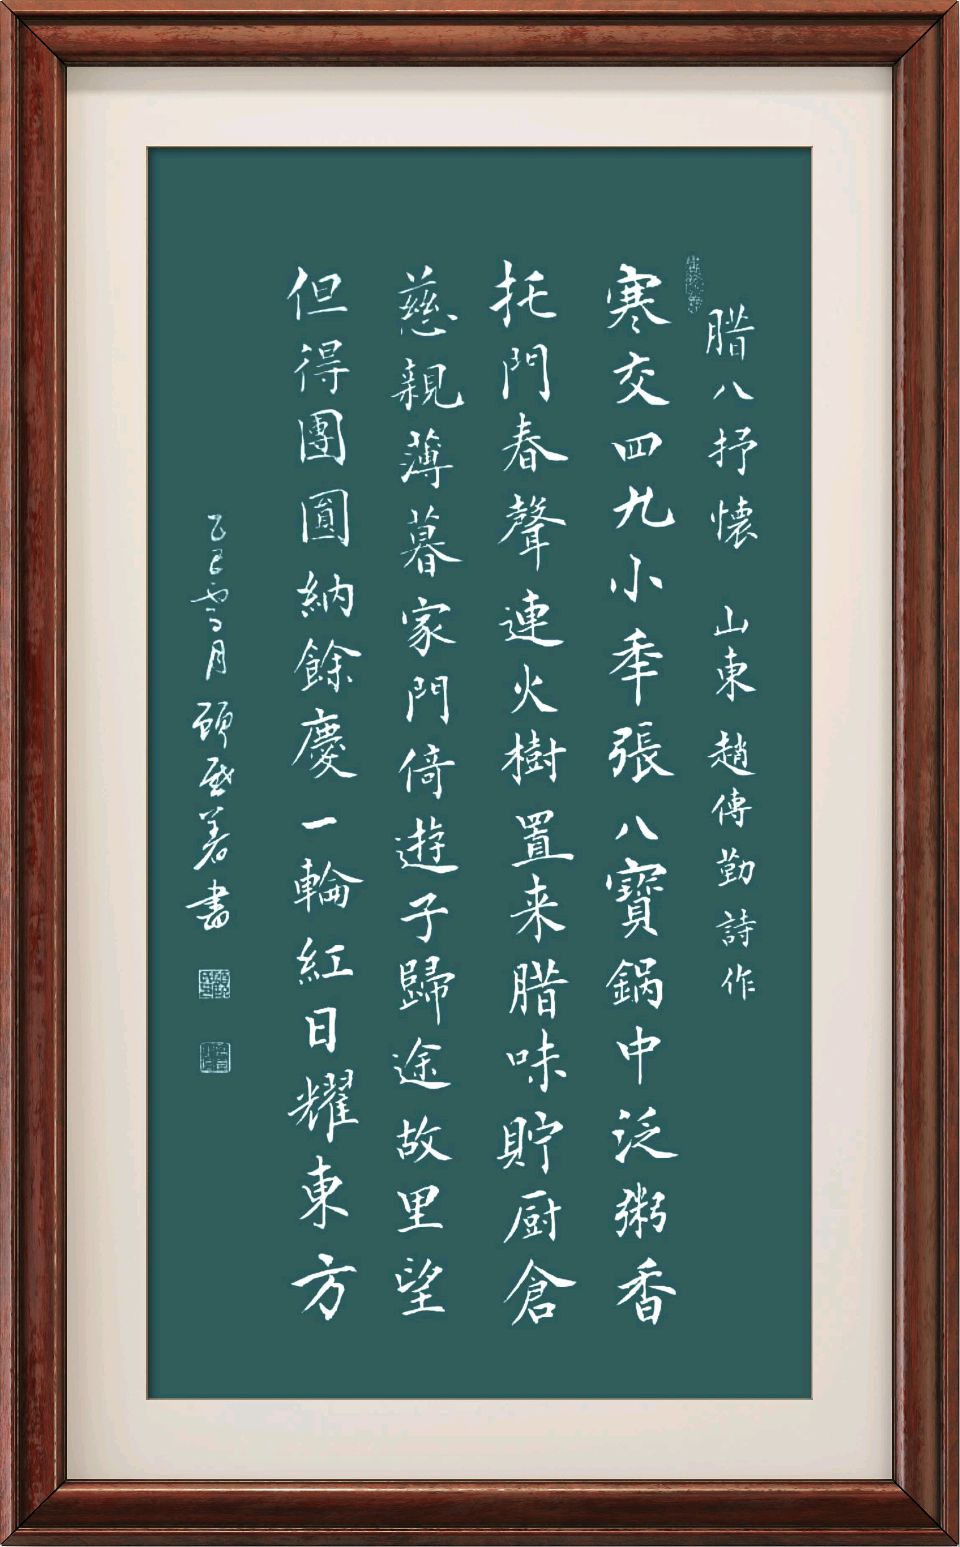 腊八抒懷 山東趙傳勤詩作
寒交四九小年張八寶鍋中泛粥香
托門春聲連火樹置来腊味貯厨倉
慈親薄暮家門倚遊子歸途故里望
但得團圓納餘慶一輪紅日耀東方
乙巳雪月顧啟善書